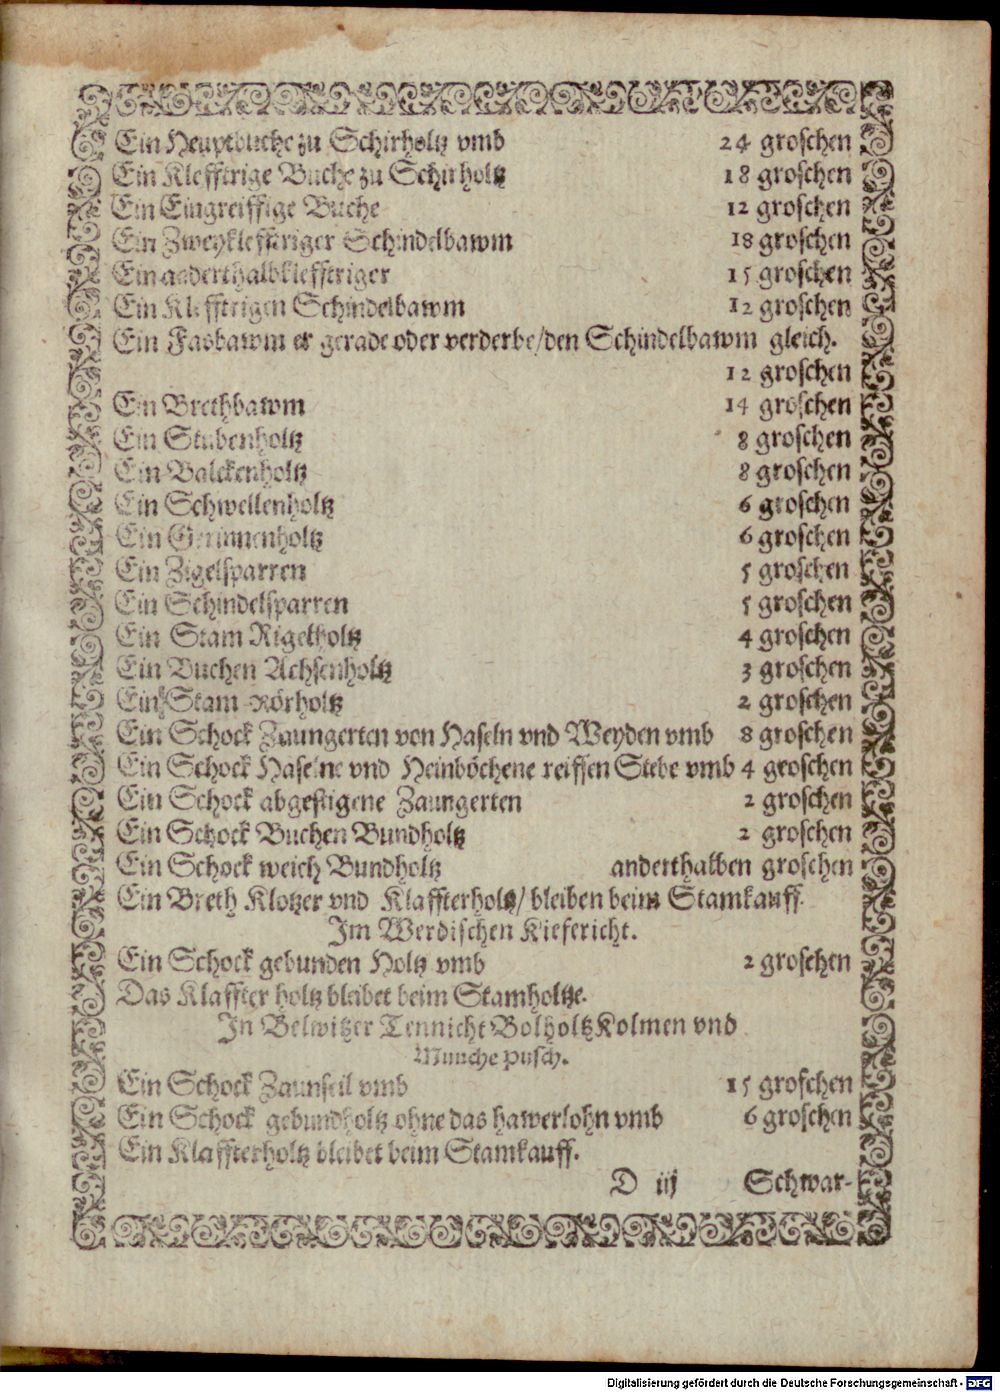 Ein Heuptbuche zu Schirholtz vmb 24 groschen
Ein Klefftrige Buche zu Schirholtz 18 groschen
Ein Eingreiffige Buche 12 groschen
Ein Zweyklefftriger Schindelbawm 18 groschen
Ein anderthalbklefftriger 15 groschen
Ein Klefftrigen Schindelbawm 12 groschen
Ein Fasbawm er gerade oder verderbe/den Schindelbawm gleich.
12 groschen
Ein Brethbawm 14 groschen
Ein Stubenholtz 8 groschen
Ein Balckenholtz 8 groschen
Ein Schwellenholtz 6 groschen
Ein Gerinnenholtz 6 groschen
Ein Zigelsparren 5 groschen
Ein Schindelsparren 5 groschen
Ein Stam Rigelholtz 4 groschen
Ein Buchen Achsenholtz 3 groschen
Ein Stam Rörholtz 2 groschen
Ein Schock Zaungerten von Haseln vnd Weyden vmb 8 groschen
Ein Schock Haselne vnd Heinböchene reiffen Stebe vmb 4 groschen
Ein Schock abgestigene Zaungerten 2 groschen
Ein Schock Buchen Bundholtz 2 groschen
Ein Schock weich Bundholtz anderthalben groschen
Ein Breth Klotzer vnd Klaffterholtz/bleiben beim Stamkauff.
Im Werdischen Kiefericht.
Ein Schock gebunden Holtz vmb 2 groschen
Das Klaffter holtz bleibet beim Stamholtze.
In Belwitzer Tennicht Bolholtz Kolmen vnd
Münche pusch.
Ein Schock Zaunseil vmb 15 groschen
Ein Schock gebundholtz ohne das hawerlohn vmb 6 groschen
Ein Klaffterholtz bleibet beim Stamkauff.
D iij Schwar-
Digitalisierung gefördert durch die Deutsche Forschungsgemeinschaft - DFG